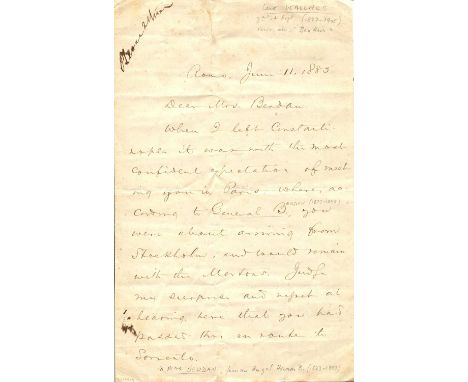 Lew WALLACE
Rome. June 11. 1883
Dear Mrs Berdan.
When I left Constanti-
nople it was with the most
confident expectation of meet-
ing you in Paris where, ac-
cording to General B, you
were about arriving from
Stockholm, and would remain
with the Mortons. Judge
my surprise and regret at
hearing here that you had
passed this en route to
Sorrento.
BERDAN